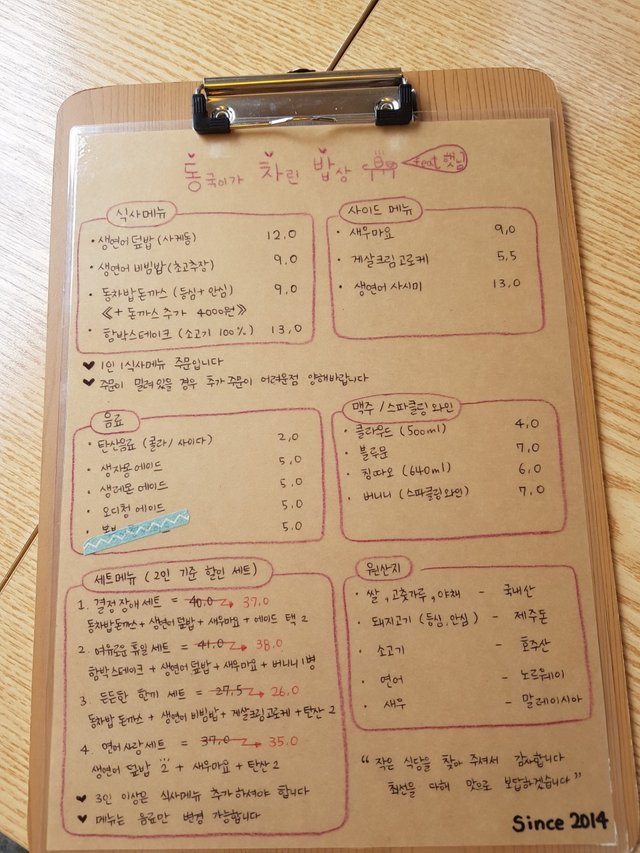 동국이가 차린 밥상 feat. 햇님
식사메뉴
· 생연어 덮밥 (사케동) 12.0
· 생연어 비빔밥 (초고추장) 9.0
· 동차밥 돈까스 (등심 + 안심) 9.0
《+ 돈까스 추가 4000원》
· 함박스테이크 (소고기 100%) 13.0
사이드 메뉴
· 새우마요 9.0
· 게살크림고로케 5.5
· 생연어 사시미 13.0
♥ 1인 1식사메뉴 주문입니다
♥ 주문이 밀려있을 경우 추가주문이 어려운점 양해바랍니다
음료
· 탄산음료 (콜라 / 사이다) 2.0
· 생자몽 에이드 5.0
· 생레몬 에이드 5.0
· 오디청 에이드 5.0
5.0
맥주 / 스파클링 와인
· 클라우드 (500ml) 4.0
· 블루문 7.0
· 칭따오 (640ml) 6.0
· 버니니 (스파클링와인) 7.0
세트메뉴 (2인 기준 할인 세트)
1. 결정장애 세트 = 40.0 → 37.0
동차밥돈까스 + 생연어덮밥 + 새우마요 + 에이드 택 2
2. 여유로운 휴일 세트 = 41.0 → 38.0
함박스테이크 + 생연어덮밥 + 새우마요 + 버니니 1병
3. 든든한 한끼 세트 = 27.5 → 26.0
동차밥 돈까스 + 생연어 비빔밥 + 게살크림고로케 + 탄산 2
4. 연어사랑세트 = 37.0 → 35.0
생연어 덮밥 2 + 새우마요 + 탄산 2
♥ 3인 이상은 식사메뉴 추가하셔야 합니다
♥ 메뉴는 음료만 변경 가능합니다
원산지
· 쌀, 고춧가루, 야채 - 국내산
· 돼지고기 (등심, 안심) - 제주돈
· 소고기 - 호주산
· 연어 - 노르웨이
· 새우 - 말레이시아
“ 작은 식당을 찾아 주셔서 감사합니다
최선을 다해 맛으로 보답하겠습니다 ”
Since 2014